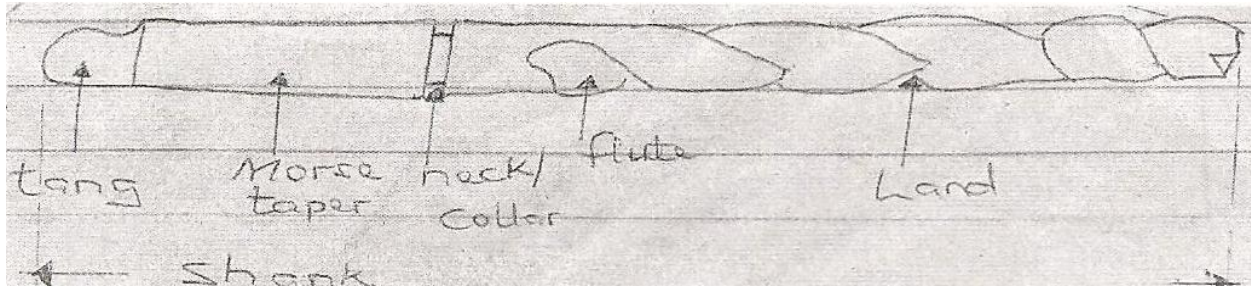 tang
Morse taper
neck/ Collar
flute
Land
Shank